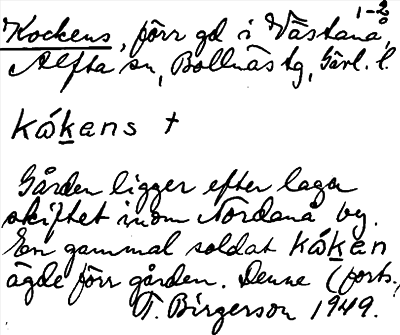 Kockens, förr gd i Västanå, 1-2
Alfta sn, Bollnäs tg, Gävl. l.
kåkans †
Gården ligger efter laga
skiftet inom Nordanå by.
En gammal soldat kåkan
ägde förr gården. Denne (forts.
T. Birgerson 1949.